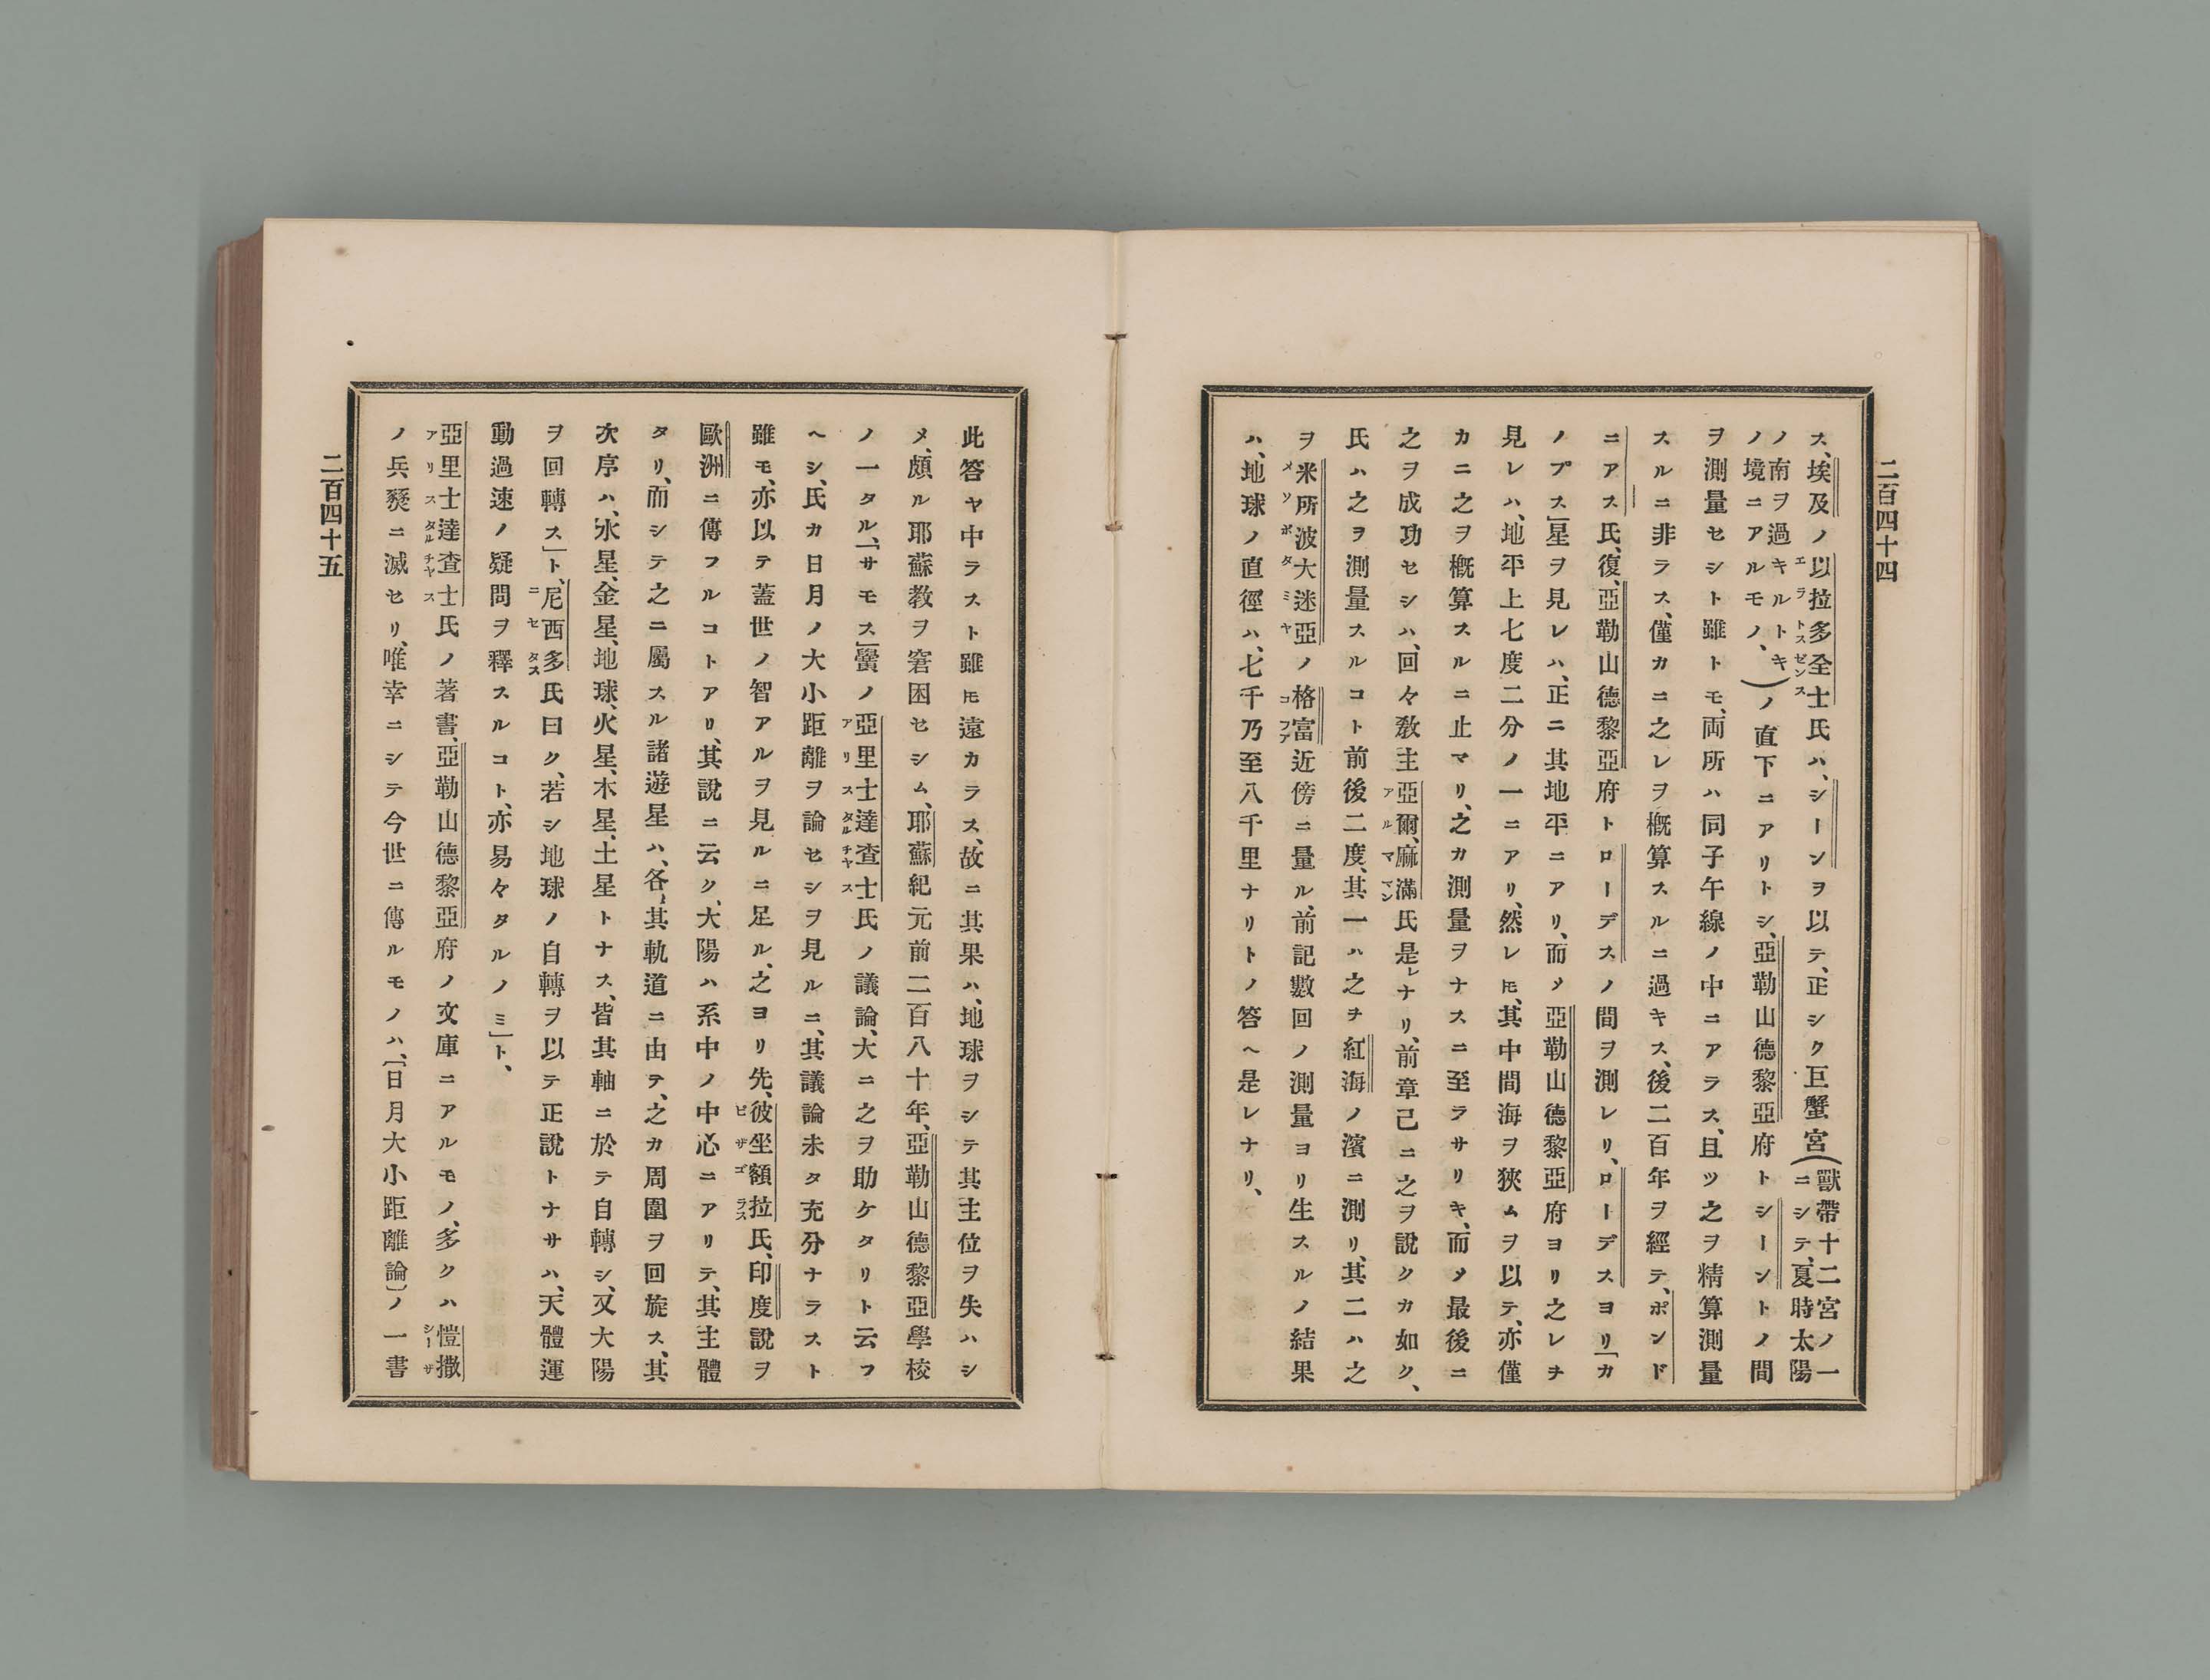 二百四十四
ス、埃及ノ以拉多全士氏ハ、シーンヲ以テ、正シク巨蟹宮(獸帶十二宮ノ一ニシテ、夏時太陽
エラトスゼンス
ノ南ヲ過キルトキノ境ニアルモノ、)ノ直下ニアリトシ、亞勒山德黎亞府トシーントノ間
ヲ測量セシト雖トモ、両所ハ同子午線ノ中ニアラス、且ツ之ヲ精算測量
スルニ非ラス、僅カニ之レヲ概算スルニ過キス、後二百年ヲ經テ、ポンド
ニアス氏、復、亞勒山德黎亞府トローデスノ間ヲ測レリ、ローデスヨリ「カ
ノプス」星ヲ見レハ、正ニ其地平ニアリ、而メ亞勒山德黎亞府ヨリ之レヲ
見レハ、地平上七度二分ノ一ニアリ、然レ𪜈、其中間海ヲ狹ムヲ以テ、亦僅
カニ之ヲ概算スルニ止マリ、之カ測量ヲナスニ至ラサリキ、而メ最後ニ
之ヲ成功セシハ、回々敎主亞爾、麻滿氏是レナリ、前章已ニ之ヲ說クカ如ク、
アルママン
氏ハ之ヲ測量スルコト前後二度、其一ハ之ヲ紅海ノ濱ニ測リ、其二ハ之
ヲ米所波大迷亞ノ格富近傍ニ量ル、前記數回ノ測量ヨリ生スルノ結果
メソポタミヤ
コフア
ハ、地球ノ直徑ハ、七千乃至八千里ナリトノ答ヘ是レナリ、
此答ヤ中ラスト雖𪜈遠カラス、故ニ其果ハ、地球ヲシテ其主位ヲ失ハシ
メ、頗ル耶蘇教ヲ窘困セシム、耶蘇紀元前二百八十年、亞勒山德黎亞學校
ノ一タル、「サモス」黌ノ亞里士達查士氏ノ議論、大ニ之ヲ助ケタリト云フ
アリスタルチヤス
ヘシ、氏カ日月ノ大小距離ヲ論セシヲ見ルニ、其議論未タ充分ナラスト
雖モ、亦以テ蓋世ノ智アルヲ見ルニ足ル、之ヨリ先、彼坐額拉氏、印度說ヲ
ピザゴラス
歐洲ニ傳フルコトアリ、其說ニ云ク、大陽ハ系中ノ中心ニアリテ、其主體
タリ、而シテ之ニ屬スル諸遊星ハ、各、其軌道ニ由テ、之カ周圍ヲ回旋ス、其
次序ハ、水星、金星、地球、火星、木星、土星トナス、皆其軸ニ於テ自轉シ、又大陽
ヲ回轉ス」ト、尼西多氏曰ク、若シ地球ノ自轉ヲ以テ正說トナサハ、天體運
ニセタス
動過速ノ疑問ヲ釋スルコト、亦易々タルノミ」ト、
亞里士達查士氏ノ著書、亞勒山德黎亞府ノ文庫ニアルモノ、多クハ愷撒
アリスタルチヤス
シーザ
ノ兵燹ニ滅セリ、唯幸ニシテ今世ニ傳ルモノハ、〔日月大小距離論〕ノ一書
二百四十五